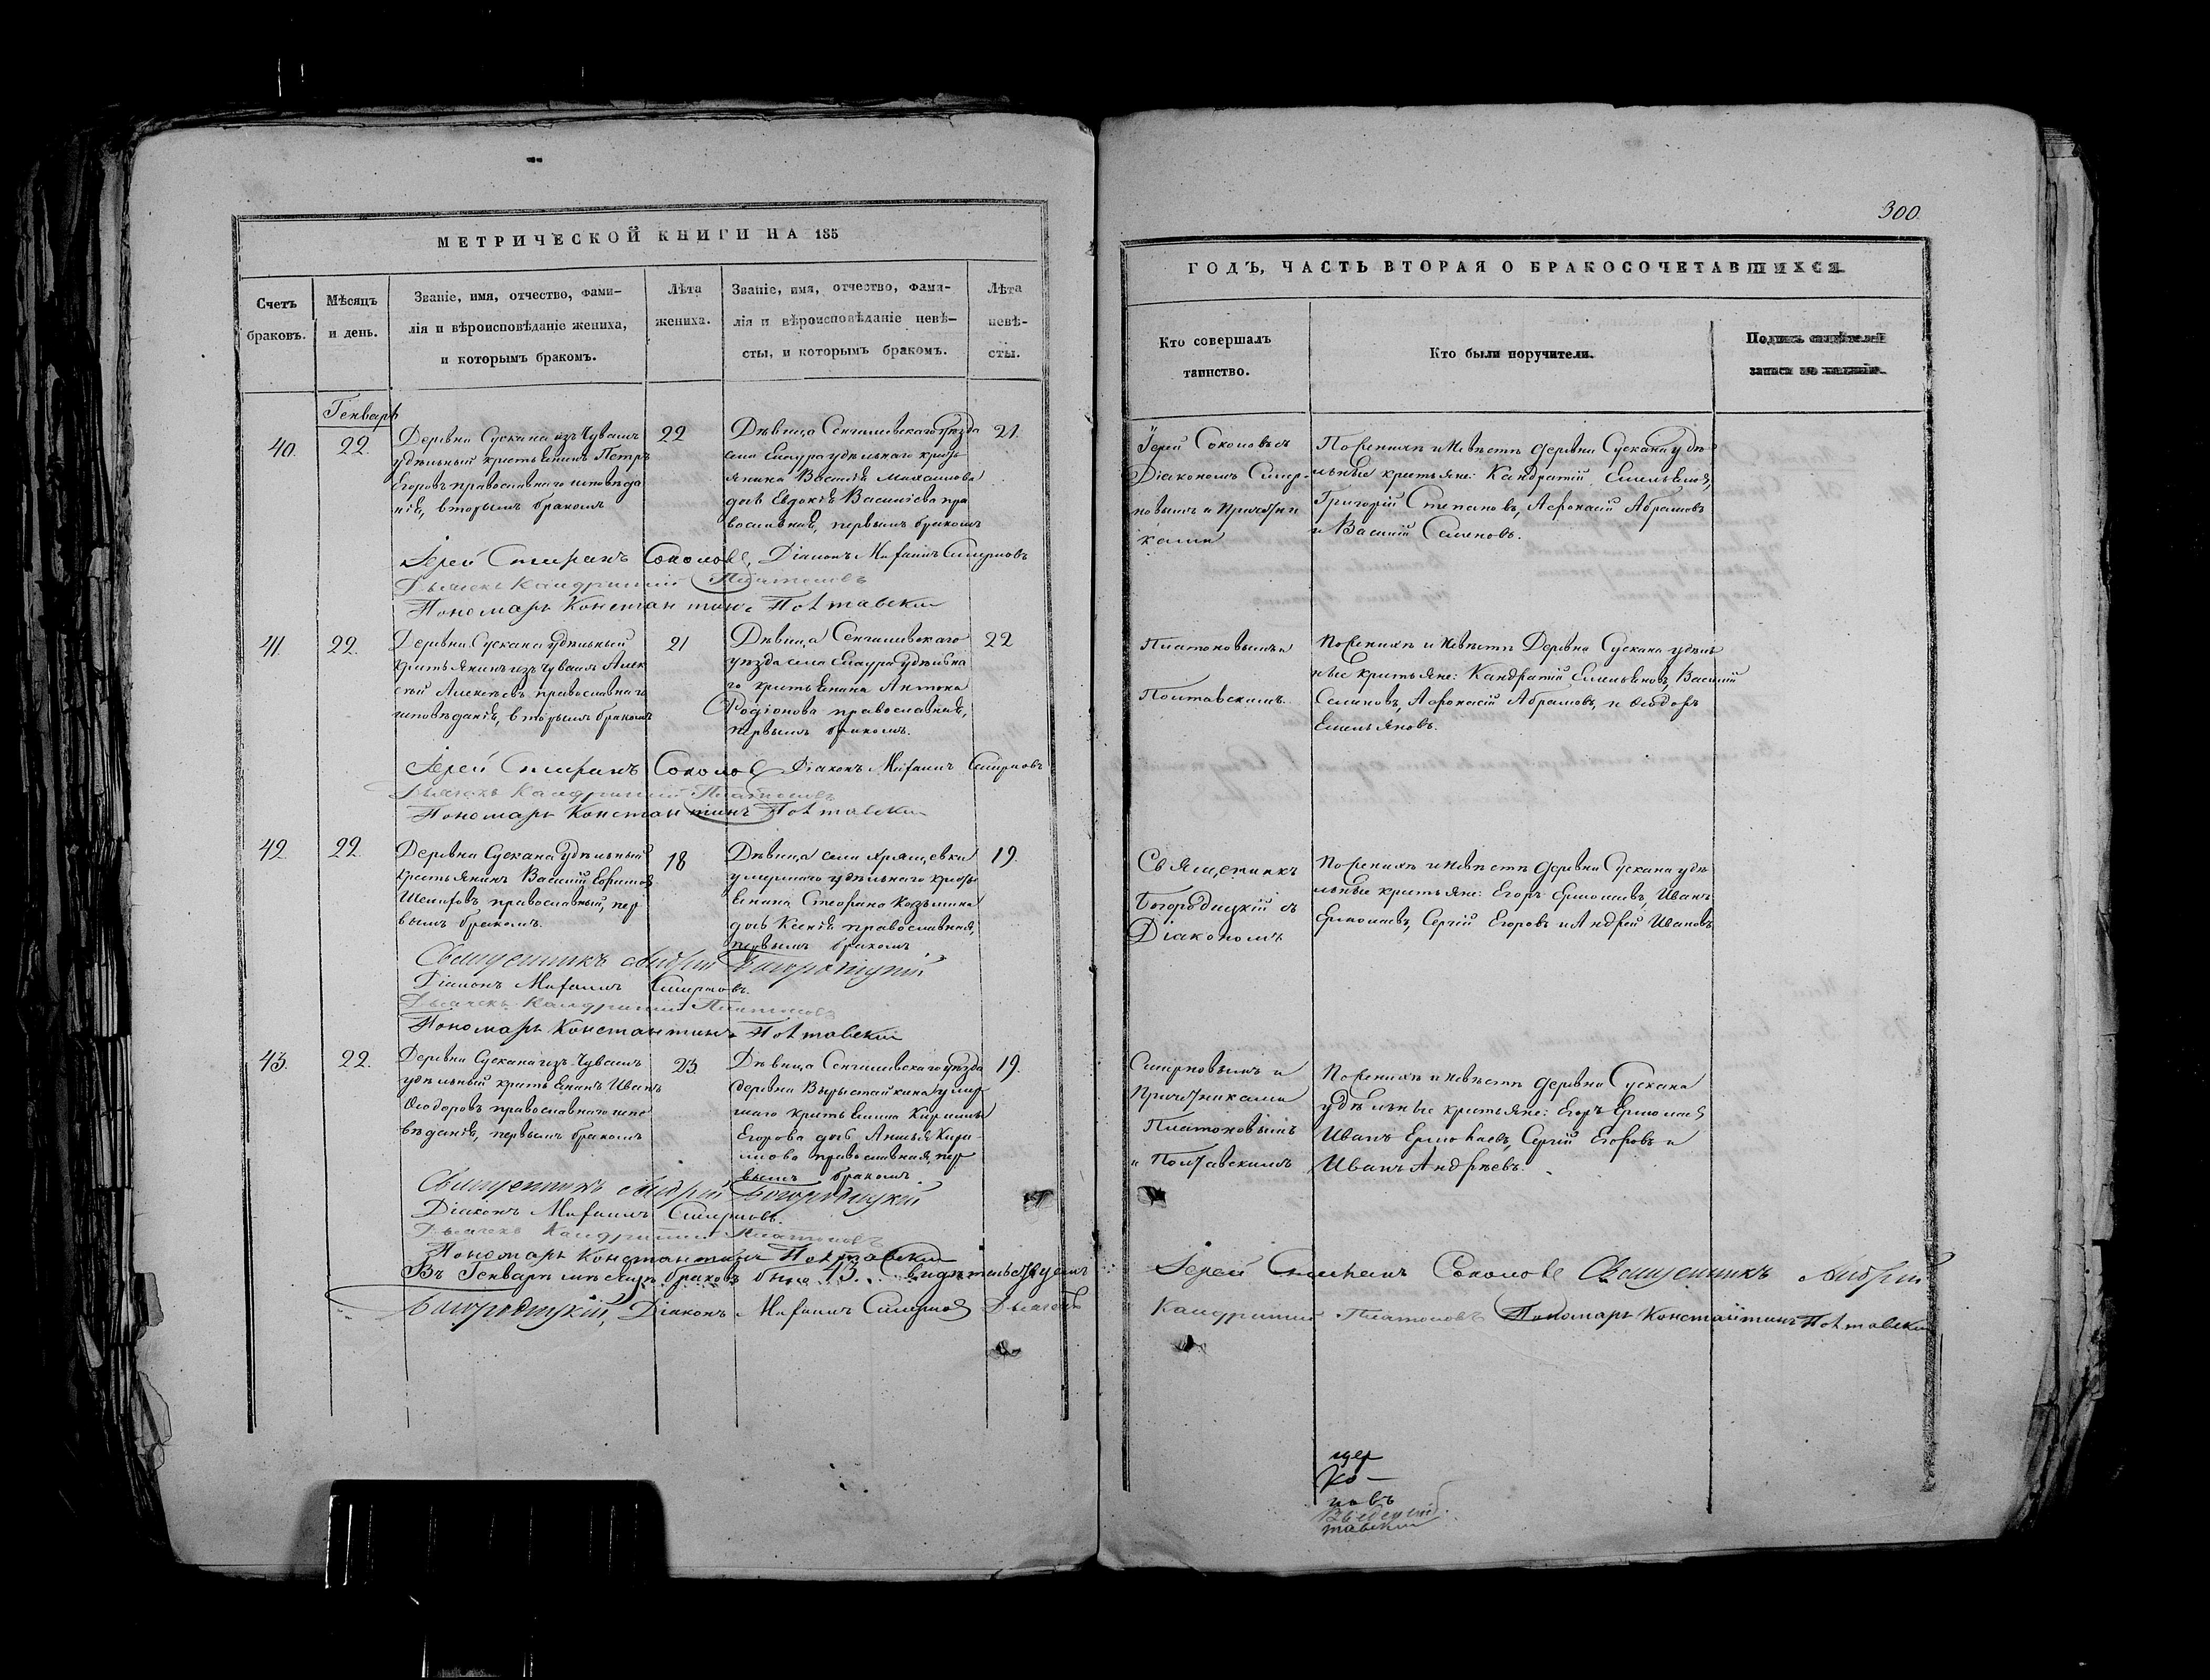 МЕТРИЧЕСКОЙ КНИГИ НА 185
Счетъ браковъ.
Мѣсяцъ и день.
Званіе, имя, отчество, фами-
лія и вѣроисповѣданіе жениха,
и которымъ бракомъ.
Лѣта
жениха.
Званіе, имя, отчество, фами-
лія и вѣроисповѣданіе невѣ-
сты, и которымъ бракомъ.
Лѣта
невѣ-
сты.
Генварь
40.
22.
Деревни Сускана изъ Чувашъ
удѣльный крестьянинъ Петръ
Егоровъ православнаго исповѣда
нія, вторымъ бракомъ
22
Дѣвица Сенгилевскаго уѣзда
села Елаура удѣльнаго кресть
янина Василія
дочь Евдокія Васильева пра
вославная, первымъ бракомъ
21.
Іерей Стефанъ Соколовъ, Діаконъ Михаилъ Смирновъ
Дьячекъ Платоновъ
Пономарь Константинъ Полтавскій
41.
22.
Деревни Сускана удѣльный
крестьянинъ изъ Чувашъ Алек
сѣй Алексѣевъ православнаго
исповѣданія, вторымъ бракомъ
21
Дѣвица Сенгилевскаго
уѣзда села Елаура удѣльна
го крестьянина Антона
Родіонова православная,
первымъ бракомъ.
22
Іерей Стефанъ Соколовъ Діаконъ Михаилъ Смирновъ
Дьячекъ Платоновъ
Пономарь Константинъ Полтавскій
42.
22.
Деревни Сускана удѣльный
крестьянинъ Василій
православный, пер
вымъ бракомъ.
18
Дѣвица села Хрящевки
умершаго удѣльнаго кресть
янина Стефана Козьмина
дочь Ксенія православная,
первымъ бракомъ
19.
Священникъ Андрей Богородицкій
Діаконъ Михаилъ Смирновъ.
Дьячекъ Платоновъ
Пономарь Константинъ Полтавскій
43.
22.
Деревни Сускана изъ Чувашъ
удѣльный крестьянинъ Иванъ
Ѳеодоровъ православнаго испо
вѣданія, первымъ бракомъ
23.
Дѣвица Сенгилевскаго уѣзда
деревни Вырыстайкина умер
шаго крестьянина Кирилы
Егорова дочь Анисья Кири
лова православная, пер
вымъ бракомъ.
19.
Священникъ Андрей Богородицкій
Діаконъ Михаилъ Смирновъ.
Дьячекъ Платоновъ
Пономарь Константинъ Полтавскій
Въ Генварѣ мѣсяцѣ браковъ было 43. Свидѣтельствуемъ
Богородицкій, Діаконъ Михаилъ Смирновъ Дьячекъ
300.
ГОДЪ, ЧАСТЬ ВТОРАЯ О БРАКОСОЧЕТАВШИХСЯ.
Кто совершалъ
таинство.
Кто были поручители.
Подпись свидѣтелей
записи по желанію.
Іерей Соколовъ съ
Діакономъ Смир-
новымъ и Причетни
ками
По женихѣ и невѣстѣ деревни Сускана удѣ
льные крестьяне: Кандратій Емельяновъ,
Григорій Степановъ, Афонасій Абрамовъ
и Василій Семеновъ.
Платоновымъ и
Полтавскимъ.
По женихѣ и невѣстѣ Деревни Сускана удѣль
ные крестьяне: Кандратій Емельяновъ, Василій
Семеновъ, Афонасій Абрамовъ, и Ѳеодоръ
Емельяновъ.
Священникъ
Богородицкій съ
Діакономъ
По женихѣ и невѣстѣ деревни Сускана удѣ
льные крестьяне: Егоръ Ермолаевъ, Иванъ
Ермолаевъ, Сергій Егоровъ и Андрей Ивановъ
Смирновымъ и
Причетниками
Платоновымъ
и Полтавскимъ
По женихѣ и невѣстѣ деревни Сускана
удѣльные крестьяне: Егоръ Ермолаевъ
Иванъ Ермолаевъ, Сергій Егоровъ и
Иванъ Андреевъ.
Іерей Стефанъ Соколовъ Священникъ Андрей
Платоновъ Пономарь Константинъ Полтавскій